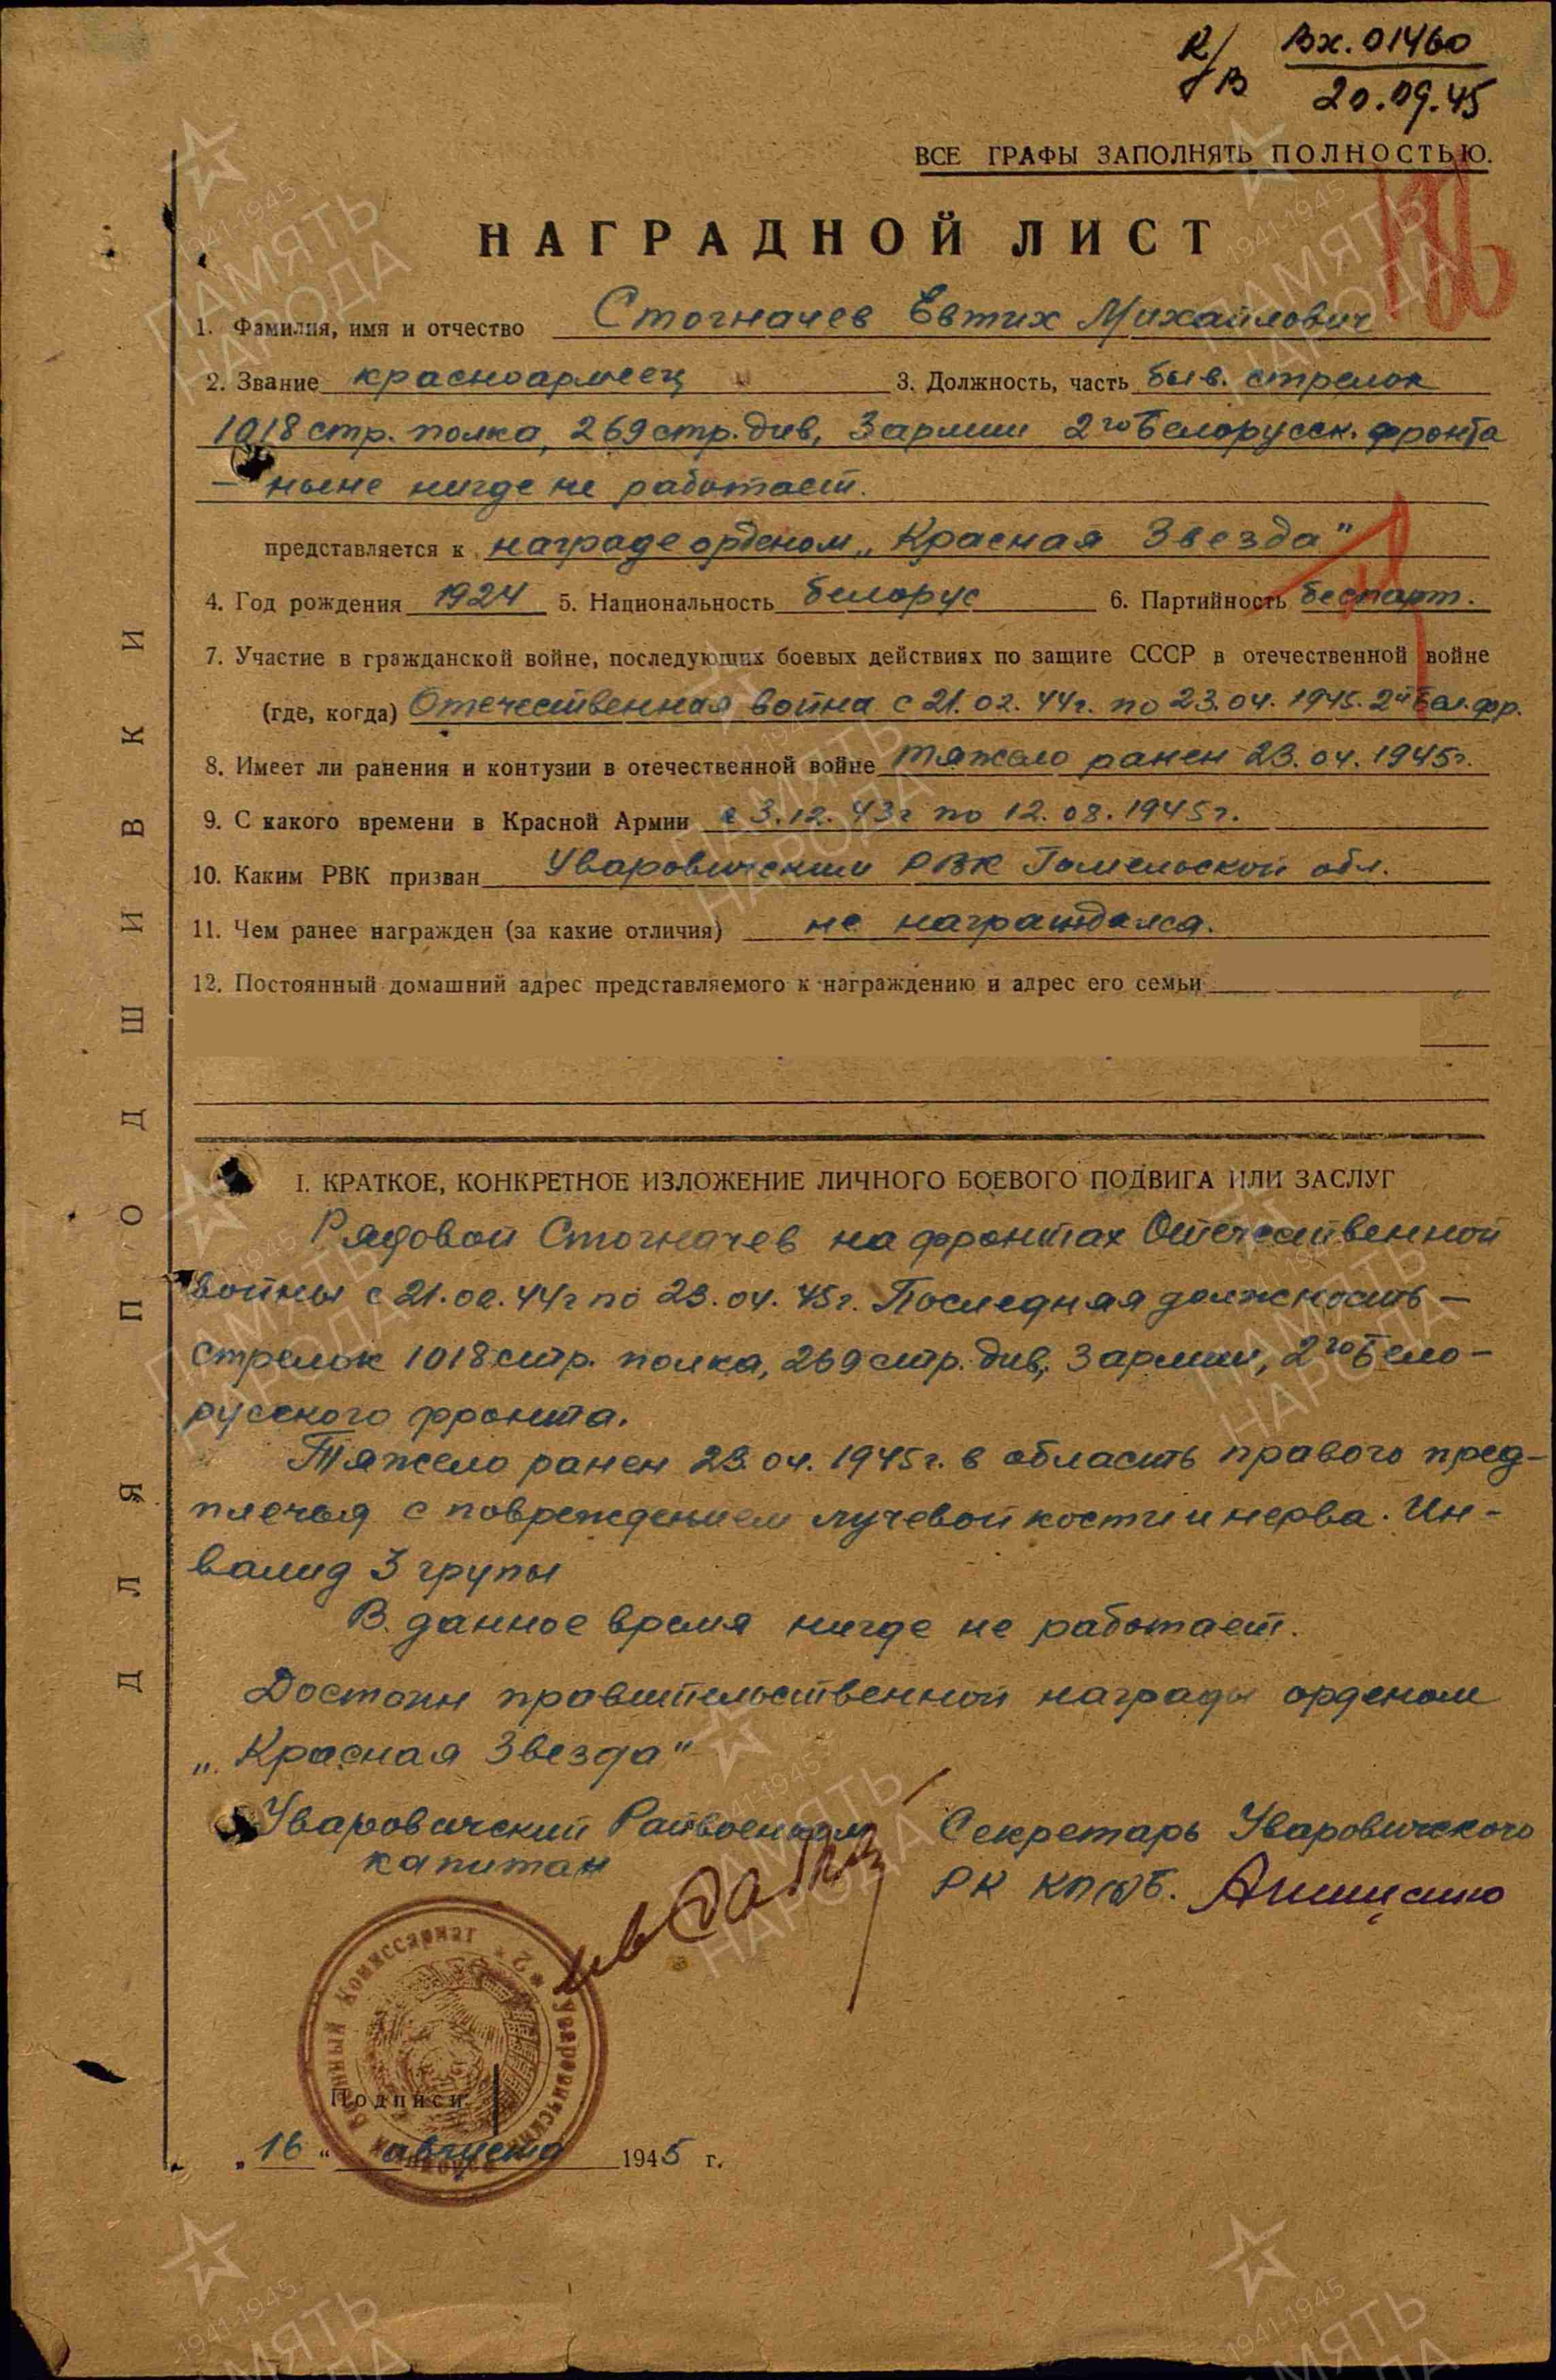 Вх. 01460
20.09.45
ВСЕ ГРАФЫ ЗАПОЛНЯТЬ ПОЛНОСТЬЮ.
НАГРАДНОЙ ЛИСТ
1. Фамилия, имя и отчество Стогначев Евтих Михайлович
2. Звание красноармеец 3. Должность, часть быв. стрелок
1018 стр. полка, 269 стр. див, 3 армии 2го Белорусск. фронта
— ныне нигде не работает.
представляется к награде орденом „Красная Звезда"
4. Год рождения 1924 5. Национальность белорус 6. Партийность беспарт.
7. Участие в гражданской войне, последующих боевых действиях по защите СССР в отечественной войне
(где, когда) Отечественная война с 21.02.44г. по 23.04.1945. 2й Бел.фр.
8. Имеет ли ранения и контузии в отечественной войне тяжело ранен 23.04.1945г.
9. С какого времени в Красной Армии с 3.12.43г по 12.08.1945г.
10. Каким РВК призван Уваровичским РВК Гомельской обл.
11. Чем ранее награжден (за какие отличия) не награждался.
12. Постоянный домашний адрес представляемого к награждению и адрес его семьи
I. КРАТКОЕ, КОНКРЕТНОЕ ИЗЛОЖЕНИЕ ЛИЧНОГО БОЕВОГО ПОДВИГА ИЛИ ЗАСЛУГ
Рядовой Стогначев на фронтах Отечественной
войны с 21.02.44г по 23.04.45г. Последняя должность —
стрелок 1018 стр. полка, 269 стр. див, 3 армии, 2го Бело-
русского фронта.
Тяжело ранен 23.04.1945г. в область правого пред-
плечья с повреждением лучевой кости и нерва. Ин-
валид 3 групы
В данное время нигде не работает.
Достоин правительственной награды орденом
„Красная Звезда"
Уваровичский Райвоенком
капитан
Секретарь Уваровичского
РК КП(б)Б.
Уваровичский Районный Военный Комиссариат * 2 *
Подписи
„16" августа 1945 г.
ДЛЯ ПОДШИВКИ
1941-1945
ПАМЯТЬ
НАРОДА